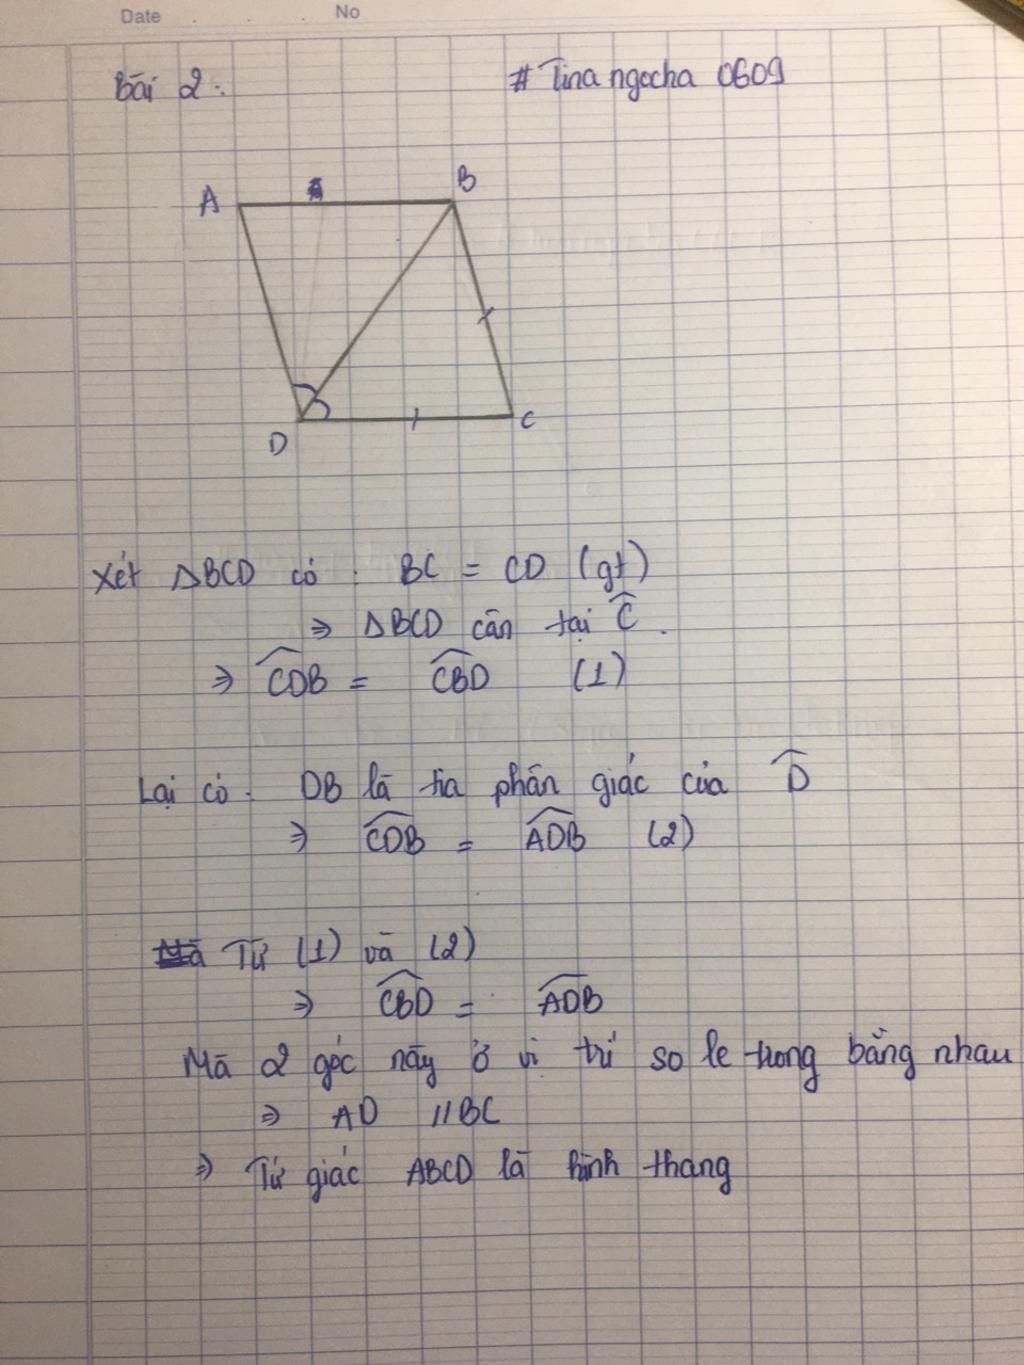 Date No
Bài 2: # Tinangocha 0609
A B
D C
Xét ΔBCD có : BC = CD (gt)
⇒ ΔBCD cân tại Ĉ.
⇒ \widehat{CDB} = \widehat{CBD} (1)
Lại có: DB là tia phân giác của \widehat{D}
⇒ \widehat{CDB} = \widehat{ADB} (2)
Từ (1) và (2)
⇒ \widehat{CBD} = \widehat{ADB}
Mà 2 góc này ở vị trí so le trong bằng nhau
⇒ AD // BC
⇒ Tứ giác ABCD là hình thang